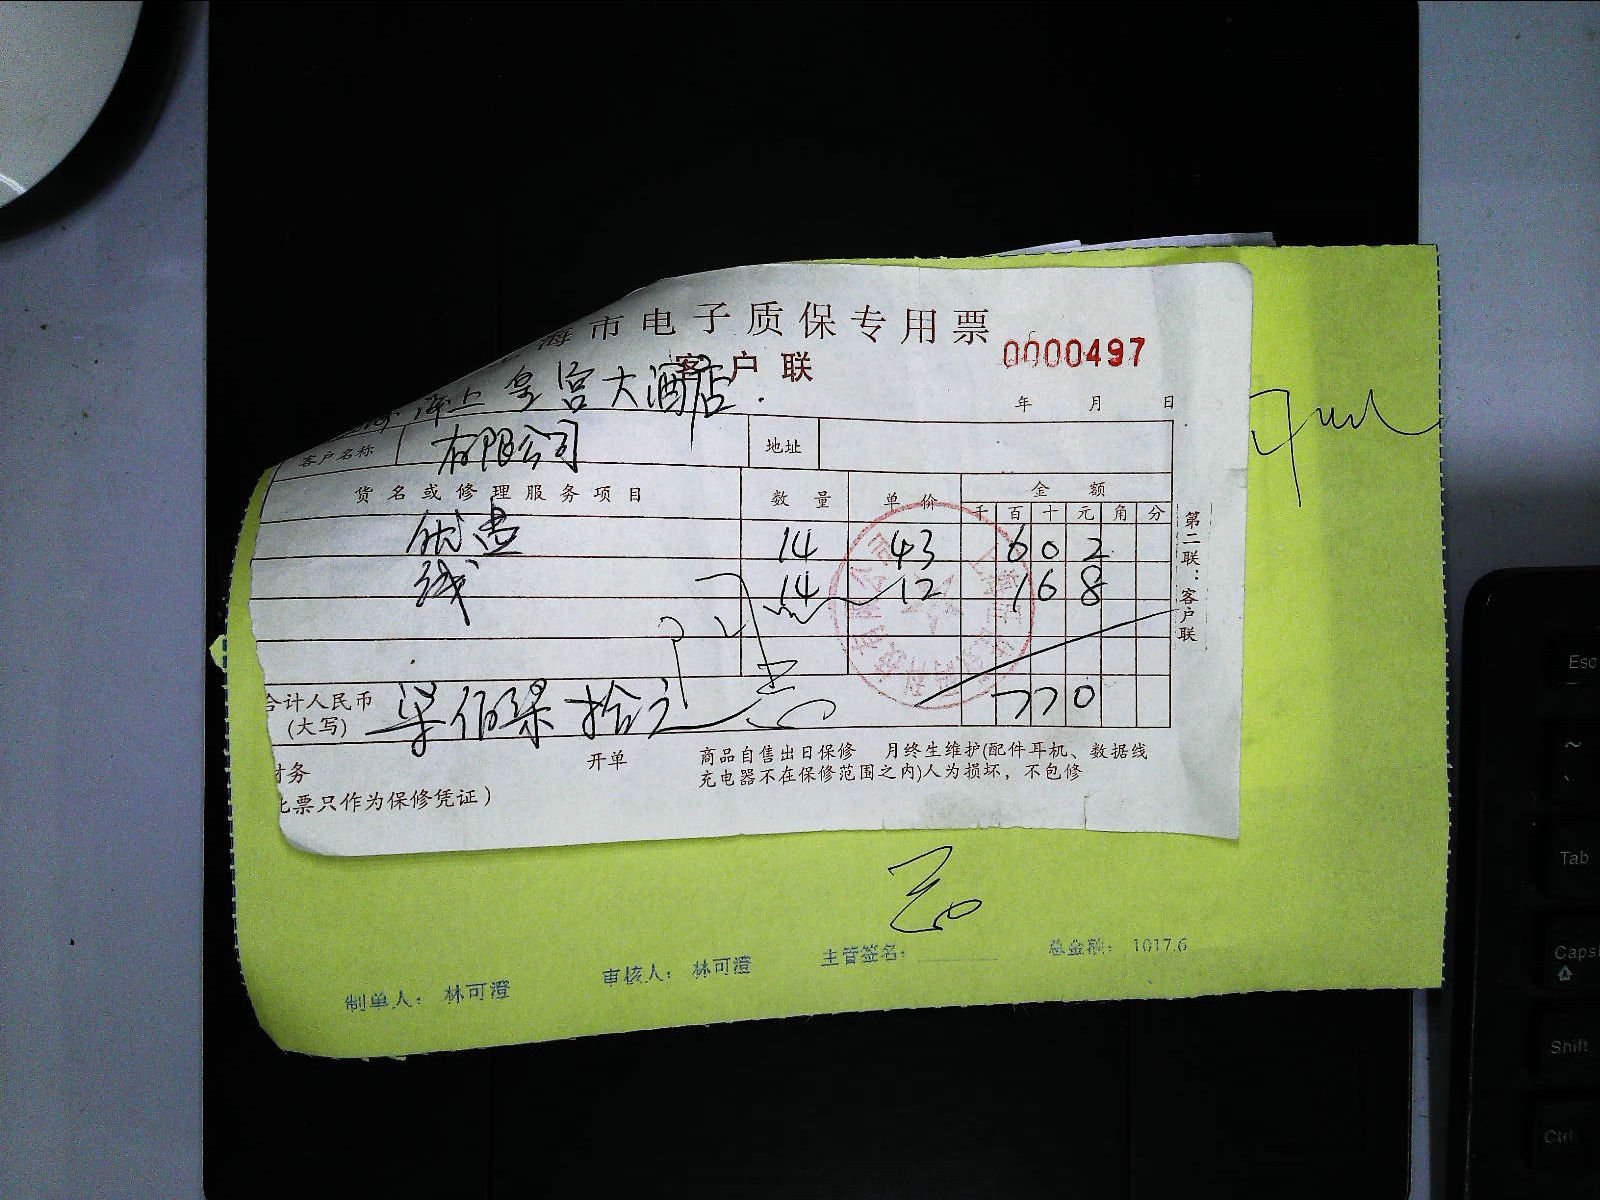 海市电子质保专用票
客户联
0000497
海上皇宫大酒店.
年 月 日
客户名称 有限公司 地址
货名或修理服务项目 数量 单价 金额
千 百 十 元 角 分
优盘 14 43 602
线 14 12 168
合计人民币
(大写) 柒佰柒拾元 770
第二联:客户联
财务 开单 商品自售出日保修 月终生维护(配件耳机、数据线
充电器不在保修范围之内)人为损坏,不包修
此票只作为保修凭证)
制单人: 林可澄 审核人: 林可澄 主管签名: 总金额: 1017.6
Esc
~
Tab
Caps
Shift
Ctrl